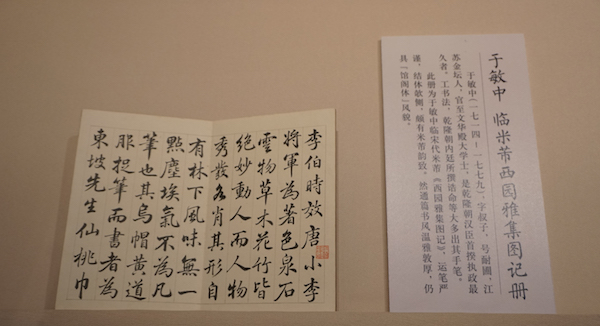 于敏中 临米芾西园雅集图记册
于敏中(一七一四-一七七九),字叔子,号耐圃,江
苏金坛人,官至文华殿大学士,是乾隆朝汉臣首揆执政最
久者。工书法,乾隆朝内廷所撰诰命等大多出其手笔。
此册为于敏中临宋代米芾《西园雅集图记》,运笔严
谨,结体欹侧,颇有米芾韵致,然通篇书风温雅敦厚,仍
具“馆阁体”风貌。
李伯時效唐小李
將軍為著色泉石
雲物草木花竹皆
絕妙動人而人物
秀發各肖其形自
有林下風味無一
點塵埃氣不為凡
筆也其烏帽黃道
服捉筆而書者為
東坡先生仙桃巾